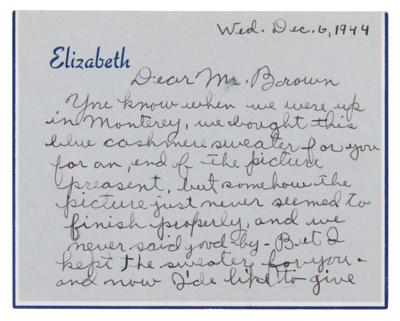 Wed. Dec. 6, 1944
Elizabeth
Dear Mr. Brown
You know when we were up
in Monterey, we bought this
blue cashmere sweater for you
for an, end of the picture
preasent, but somehow the
picture just never seemed to
finish properly, and we
never said good-by - But I
kept the sweater, for you -
and now I'de like to give